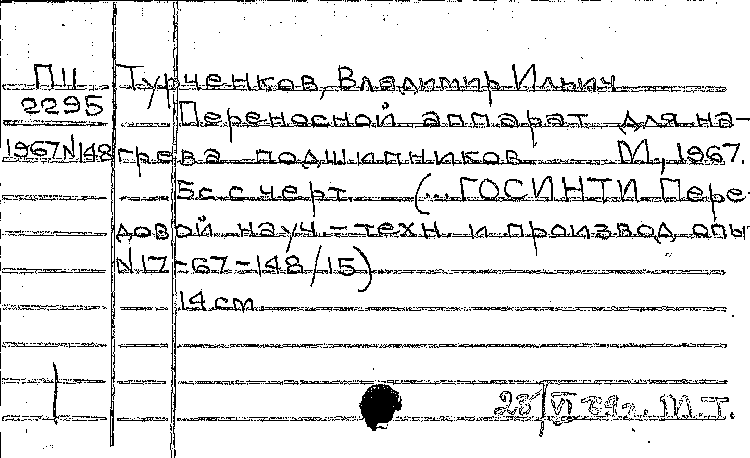 П11 Турченков, Владимир Ильич
2295 Переносной аппарат для на-
1967 N148 грева подшипников. М., 1967.
5с с черт. (... ГОСИНТИ. Пере-
довой науч.-техн. и производ. опыт
N 17-67-148/15)
14 см.
23/VI 84г. М.Т.